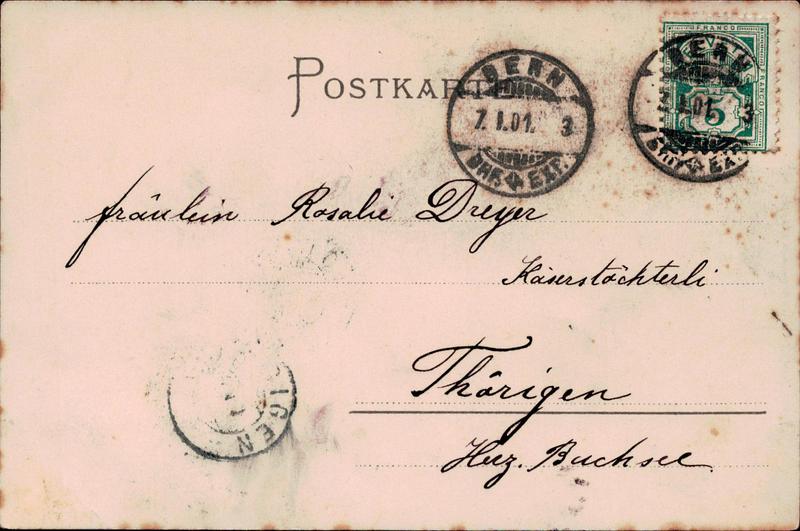 POSTKARTE
BERN
7.I.01. 3
BHF. EXP.
FRANCO
BERN
7.I.01. 3
5
FRANCO
fräulein Rosalie Dreyer
Käserstöchterli
Thörigen
Herz. Buchsee.
IGEN